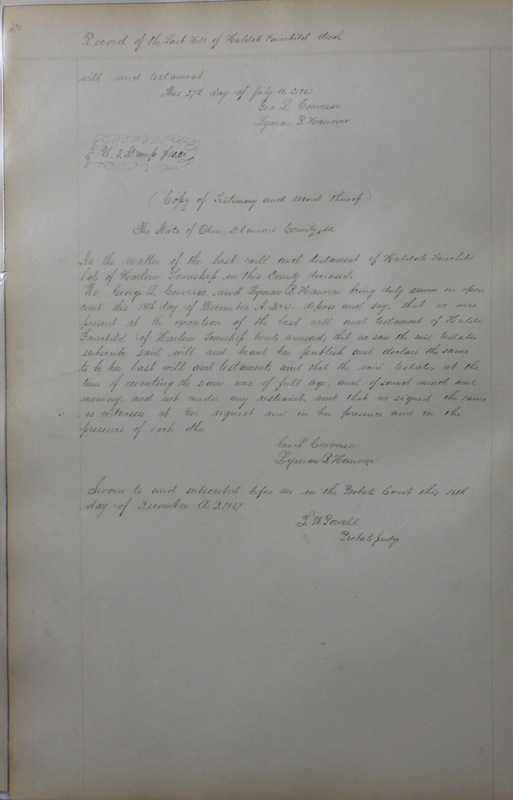 Record of the Last Will of Huldah Fairchild decd
will and testament.
This 27th day of July A.D. 1867
Geo. L. Converse
Lyman B. Hanover
U. S. Stamp
(Copy of Testimony and record thereof)
The State of Ohio, Delaware County, ss.
In the matter of the last will and testament of Huldah Fairchild
late of Harlem Township in this County deceased.
We, George L. Converse and Lyman B. Hanover being duly sworn in open
court this 18th day of December A.D. 1867, depose and say, that we were
present at the execution of the last will and testament of Huldah
Fairchild of Harlem Township hereto annexed, that we saw the said testator
subscribe said will and heard her publish and declare the same
to be her last will and testament, and that the said testator at the
time of executing the same was of full age, and of sound mind and
memory, and not under any restraint, and that we signed the same
as witnesses at her request and in her presence and in the
presence of each other
Geo. L. Converse
Lyman B. Hanover
Sworn to and subscribed before me in the Probate Court this 18th
day of December A.D. 1867
Powell
Probate Judge